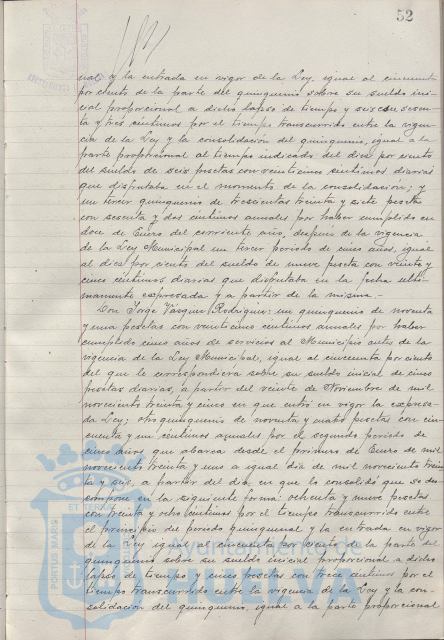 52
ual y la entrada en vigor de la Ley, igual al cincuenta
por ciento de la parte del quinquenio sobre su sueldo ini-
cial proporcional a dicho lapso de tiempo y seis con sesen-
ta y tres centimos por el tiempo transcurrido entre la vigen-
cia de la Ley y la consolidación del quinquenio, igual a la
parte proporcional al tiempo indicado del diez por ciento
del sueldo de seis pesetas con veinticinco centimos diarias
que disfrutaba en el momento de la consolidación; y
un tercer quinquenio de trescientas treinta y siete pesetas
con sesenta y dos centimos anuales por haber cumplido en
doce de Enero del corriente año, despues de la vigencia
de la Ley Municipal un tercer periodo de cinco años, igual
al diez por ciento del sueldo de nueve pesetas con veinte y
cinco centimos diarias que disfrutaba en la fecha ulti-
mamente expresada y a partir de la misma.-
Don Jorge Vásquez Rodriguez: un quinquenio de noventa
y una pesetas con veinticinco centimos anuales por haber
cumplido cinco años de servicios al Municipio antes de la
vigencia de la Ley Municipal, igual al cincuenta por ciento
del que le correspondiera sobre su sueldo inicial de cinco
pesetas diarias, a partir del veinte de Noviembre de mil
novecientos treinta y cinco en que entró en vigor la expresa-
da Ley; otro quinquenio de noventa y cuatro pesetas con cin-
cuenta y un centimos anuales por el segundo periodo de
cinco años que abarca desde el primero de Enero de mil
novecientos treinta y uno a igual dia de mil novecientos trein-
ta y seis, a partir del dia en que lo consolidó que se des-
compone en la siguiente forma: ochenta y nueve pesetas
con treinta y ocho centimos por el tiempo transcurrido entre
el principio del periodo quinquenal y la entrada en vigor
de la Ley igual al cincuenta por ciento de la parte del
quinquenio sobre su sueldo inicial proporcional a dicho
lapso de tiempo y cinco pesetas con trece centimos por el
tiempo transcurrido entre la vigencia de la Ley y la con-
solidación del quinquenio, igual a la parte proporcional
Ayuntamiento de
HUELVA
PORTUS MARIS
ET TERRAE